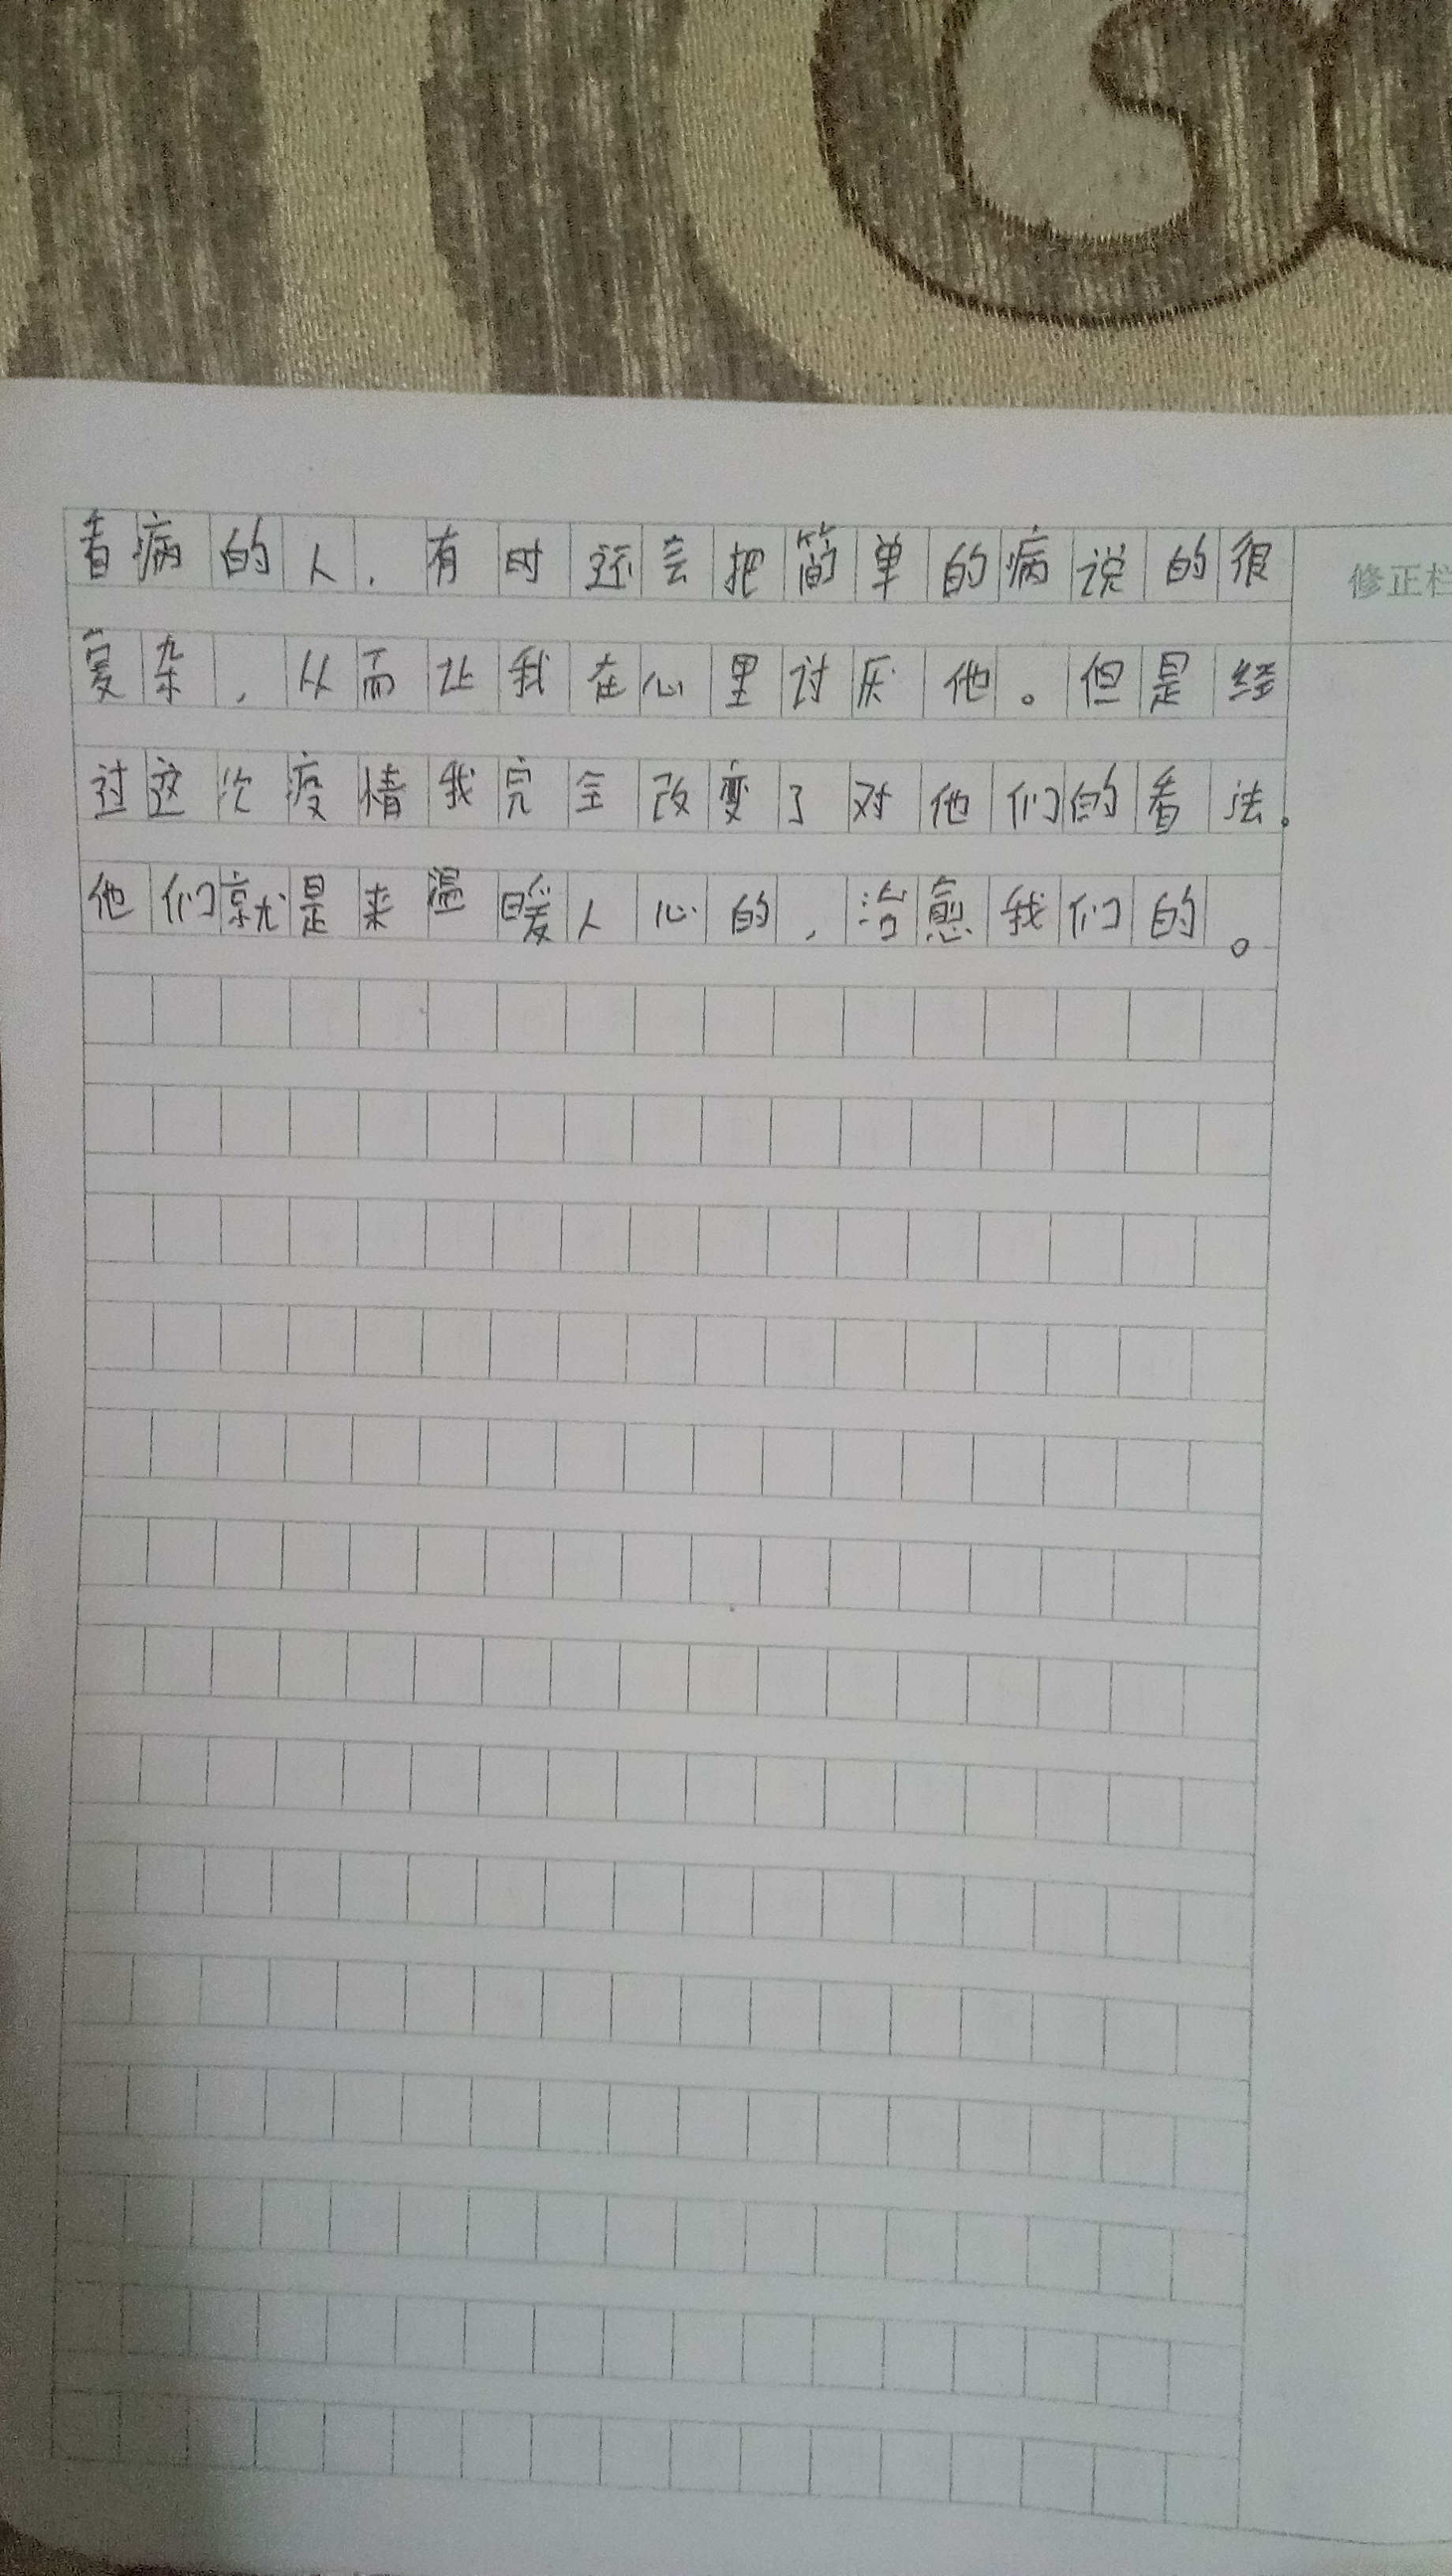 看病的人，有时还会把简单的病说的很
修正栏
复杂，从而让我在心里讨厌他。但是经
过这次疫情我完全改变了对他们的看法。
他们就是来温暖人心的，治愈我们的。